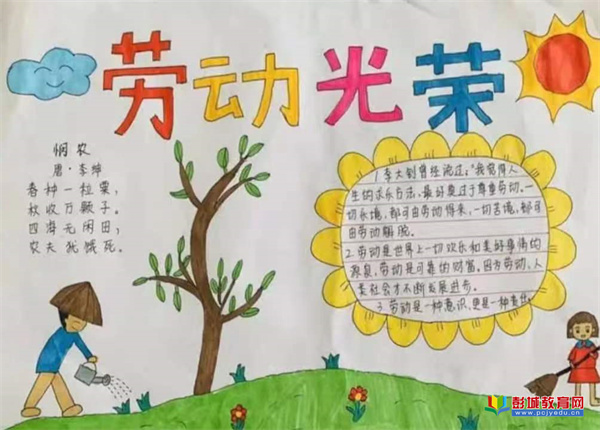 劳动光荣
悯农
唐·李绅
春种一粒粟，
秋收万颗子。
四海无闲田，
农夫犹饿死。
1.李大钊曾经说过："我觉得人
生的求乐方法，最好莫过于尊重劳动。一
切乐境，都可由劳动得来，一切苦境，都可
由劳动解脱。
2.劳动是世界上一切欢乐和美好事情的
源泉，劳动是可靠的财富。因为劳动，人
类社会才不断发展进步。
3.劳动是一种意识，更是一种责任
彭城教育网
www.pcjyedu.cn